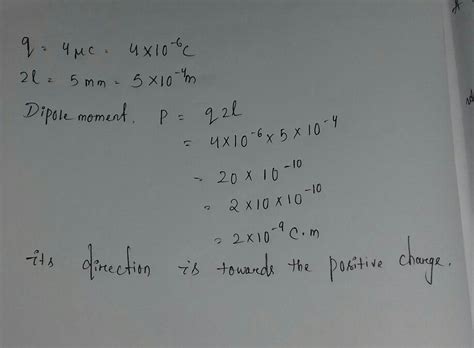 q = 4μc = 4×10⁻⁶C
2l = 5mm = 5×10⁻⁴m
Dipole moment, P = q2l
= 4×10⁻⁶×5×10⁻⁴
= 20×10⁻¹⁰
= 2×10×10⁻¹⁰
= 2×10⁻⁹ C.m
its direction is towards the positive charge.